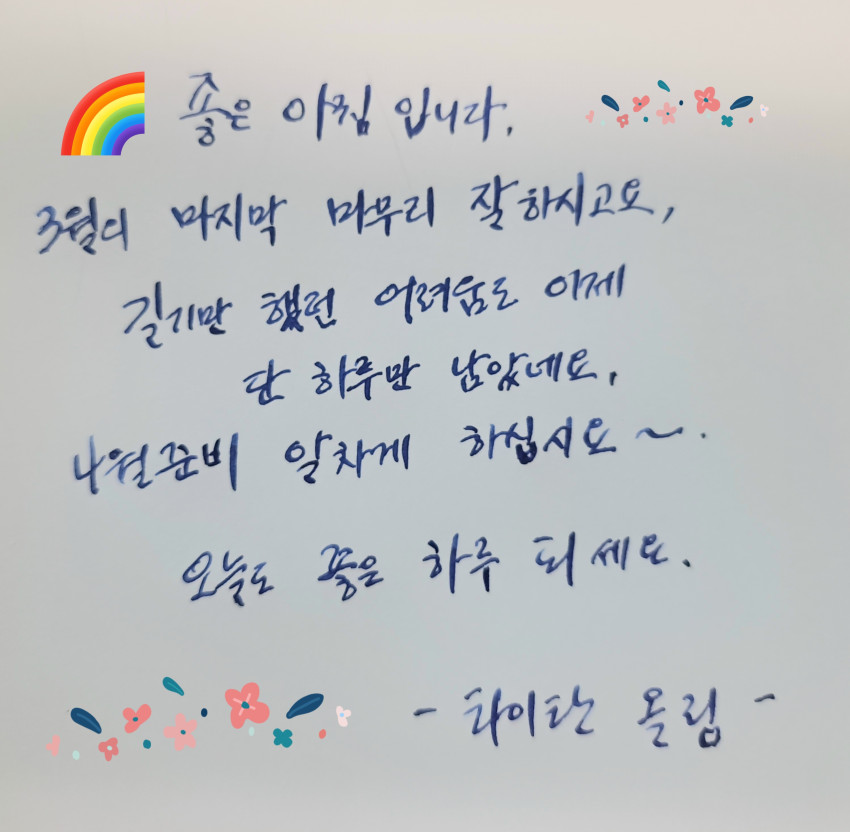 좋은 아침 입니다.
3월의 마지막 마무리 잘하시고요,
길기만 했던 어려움도 이제
단 하루만 남았네요.
4월준비 알차게 하십시요~.
오늘도 좋은 하루 되세요.
- 타이탄 올림 -